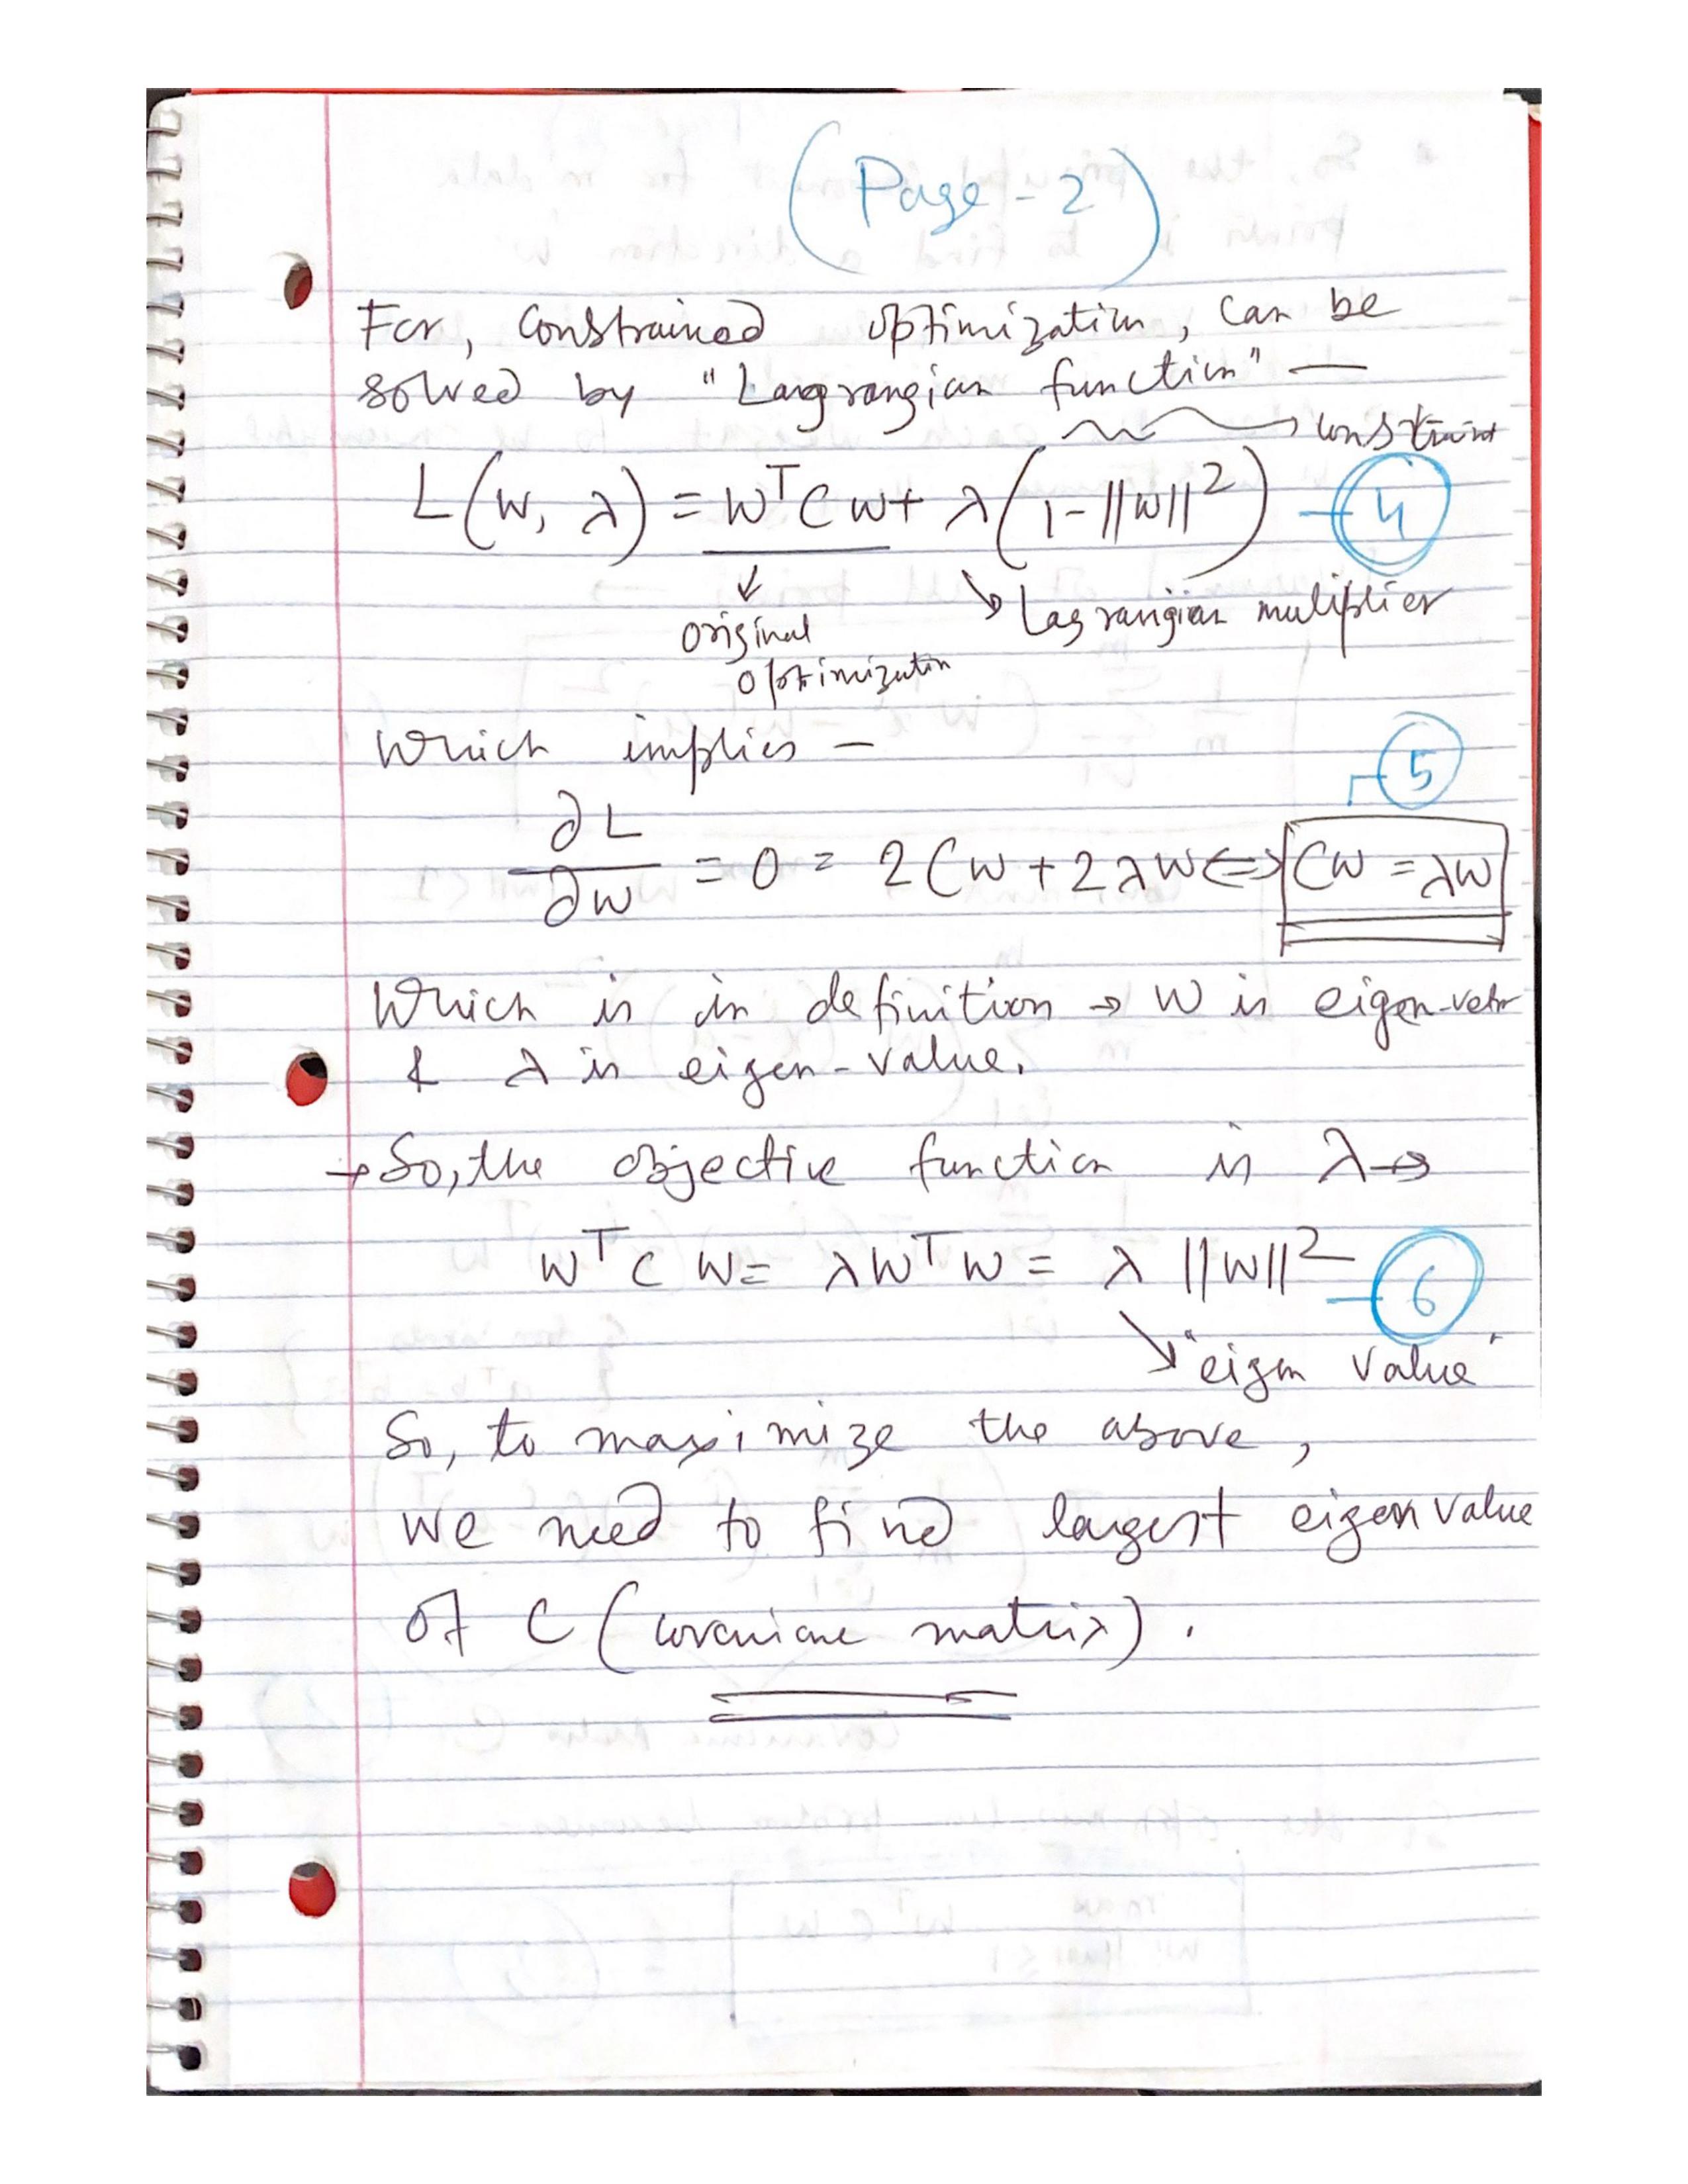 (Page - 2)
For, constrained optimization, can be
solved by "Lagrangian function" —
→ constraint
L(w, λ) = wᵀCw + λ(1 - ||w||²) — 4
↓ original optimization
↘ Lagrangian muliplier
Which implies —
5
∂L/∂w = 0 = 2Cw + 2λw ⇔ Cw = λw
Which is in definition → w is eigen-vetr
& λ is eigen-value.
→ So, the objective function is λ →
wᵀCw = λwᵀw = λ||w||² — 6
↘ "eigen value"
So, to maximize the above,
we need to find largest eigen value
of C (covariance matrix).